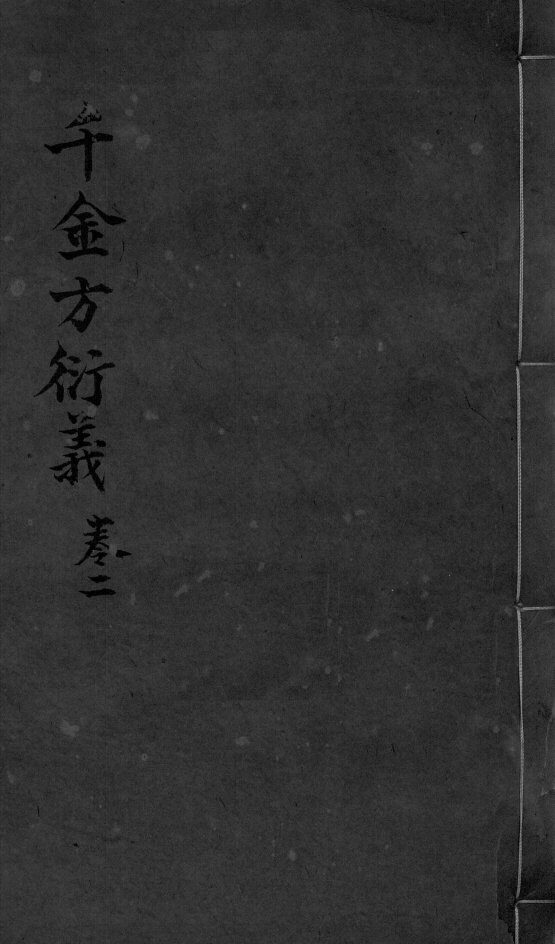 千金方衍義 卷二